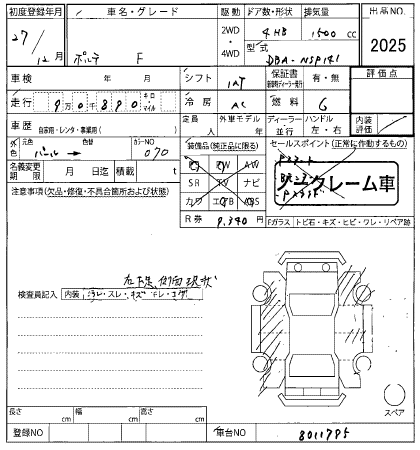 初度登録年月 車名・グレード 駆動 ドア数・形状 排気量 出品NO.
27/12月 ポルテ F 2WD・4WD 4HB 1500cc 2025
型式 DBA-NSP141
車検 年 月 シフト IAT 保証書 有・無 評価点
走行 9万0千890 キロ・マイル 冷房 AC 燃料 G
定員 人 外車モデル 年 ディーラー・並行 ハンドル 左・右 内装評価
車歴 自家用・レンタ・事業用( )
外色 元色 パール→ 色替 カラーNO 070
装備品(純正品に限る) セールスポイント(正常に作動するもの)
PS PW AW
SR TV ナビ
カワ エアB ABS
ノークレーム車
名義変更期限 月 日迄 積載 t
注意事項(欠品・修復・不具合箇所および状態)
R券 9,340円 Fガラス トビ石・キズ・ヒビ・ワレ・リペア跡
右下 側面現状
検査員記入 内装
スペア
長さ cm 幅 cm 高さ cm
登録NO 車台NO 8011795